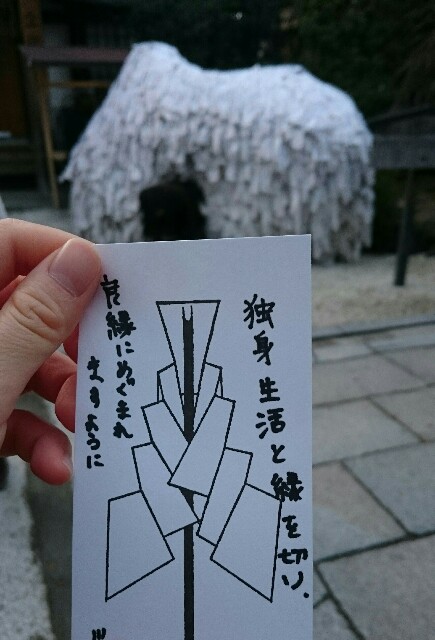 独身生活と縁を切り、
良縁にめぐまれ
ますように